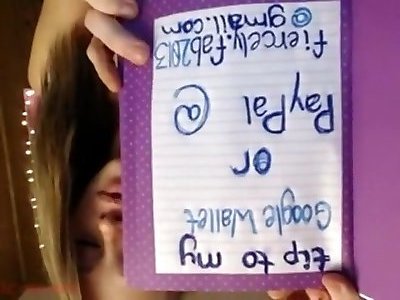 tip to my
Google Wallet
or
PayPal @
fiercely.fab2013
@gmail.com